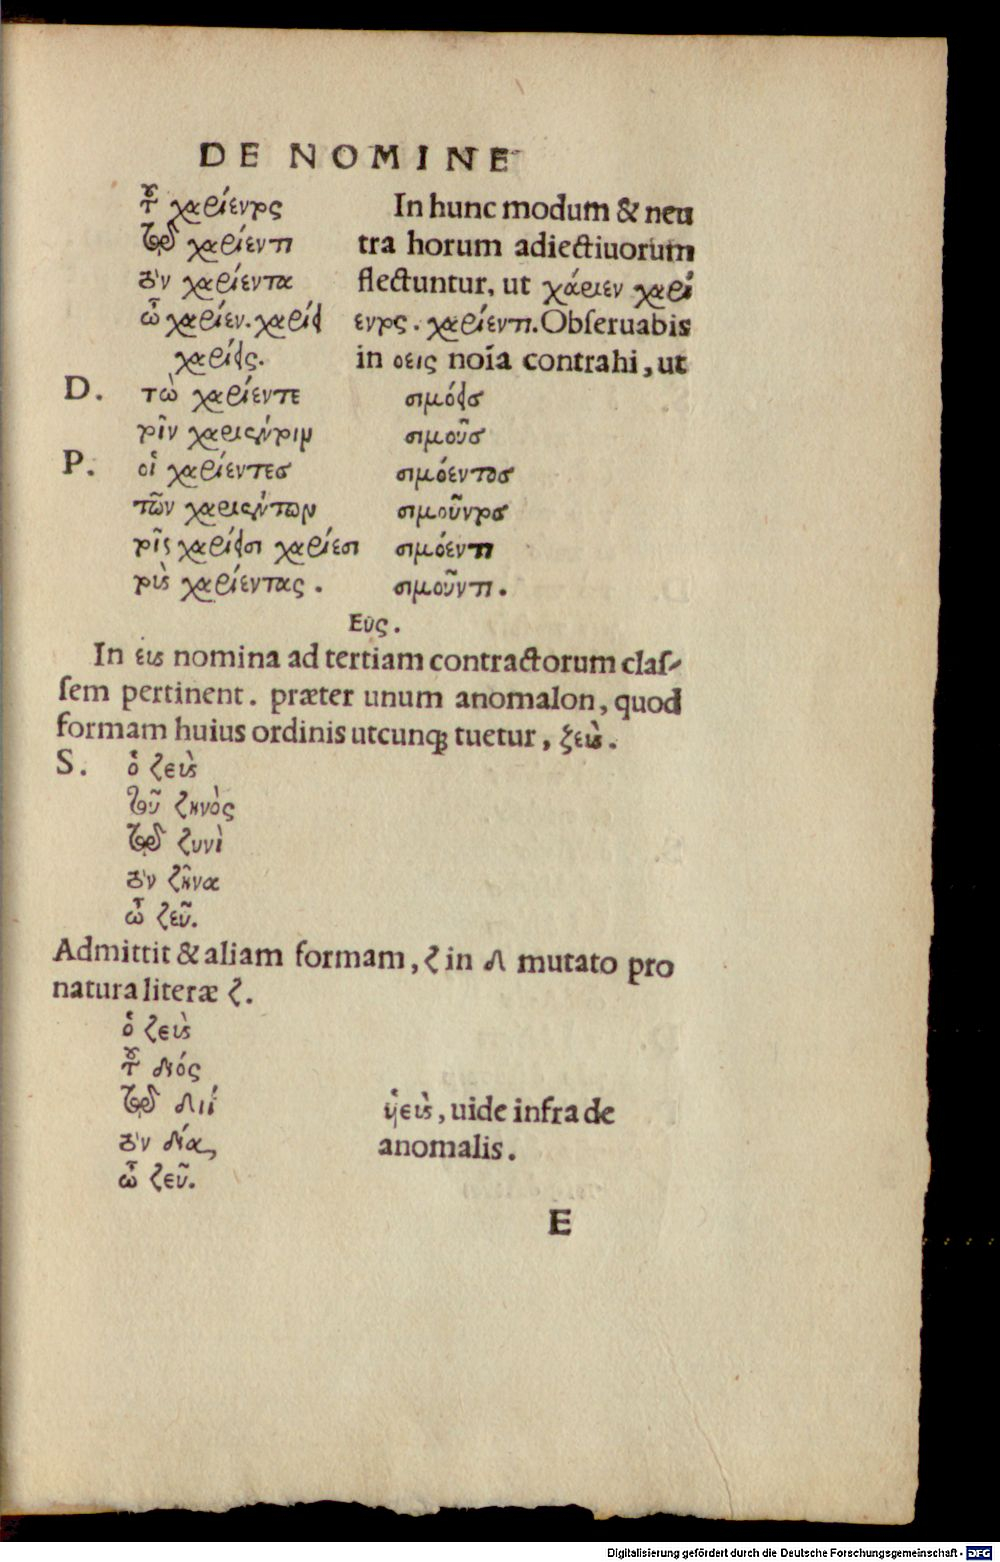 DE NOMINE
τοῦ χαρίεντος
τῷ χαρίεντι
τὸν χαρίεντα
ὦ χαρίεν. χαρίει
χαρίεις.
D. τὼ χαρίεντε
τοῖν χαριέντοιν
P. οἱ χαρίεντες
τῶν χαριέντων
τοῖς χαρίεισι χαρίεσι
τοὺς χαρίεντας.
In hunc modum & neu
tra horum adiectiuorum
flectuntur, ut χάριεν χαρί
εντος. χαρίεντι. Obſeruabis
in οεις noīa contrahi, ut
σιμόεις
σιμοῦς
σιμόεντος
σιμοῦντος
σιμόεντι
σιμοῦντι.
Ευς.
In εις nomina ad tertiam contractorum claſ-
ſem pertinent. præter unum anomalon, quod
formam huius ordinis utcunq; tuetur, ξεὺς.
S. ὁ ζεὺς
τοῦ ζηνὸς
τῷ ζυνὶ
τὸν ζῆνα
ὦ ζεῦ.
Admittit & aliam formam, ζ in δ mutato pro
natura literæ ζ.
ὁ ζεὺς
τοῦ διός
τῷ διί
τὸν δία,
ὦ ζεῦ.
uide infra de
anomalis.
E
Digitalisierung gefördert durch die Deutsche Forschungsgemeinschaft - DFG